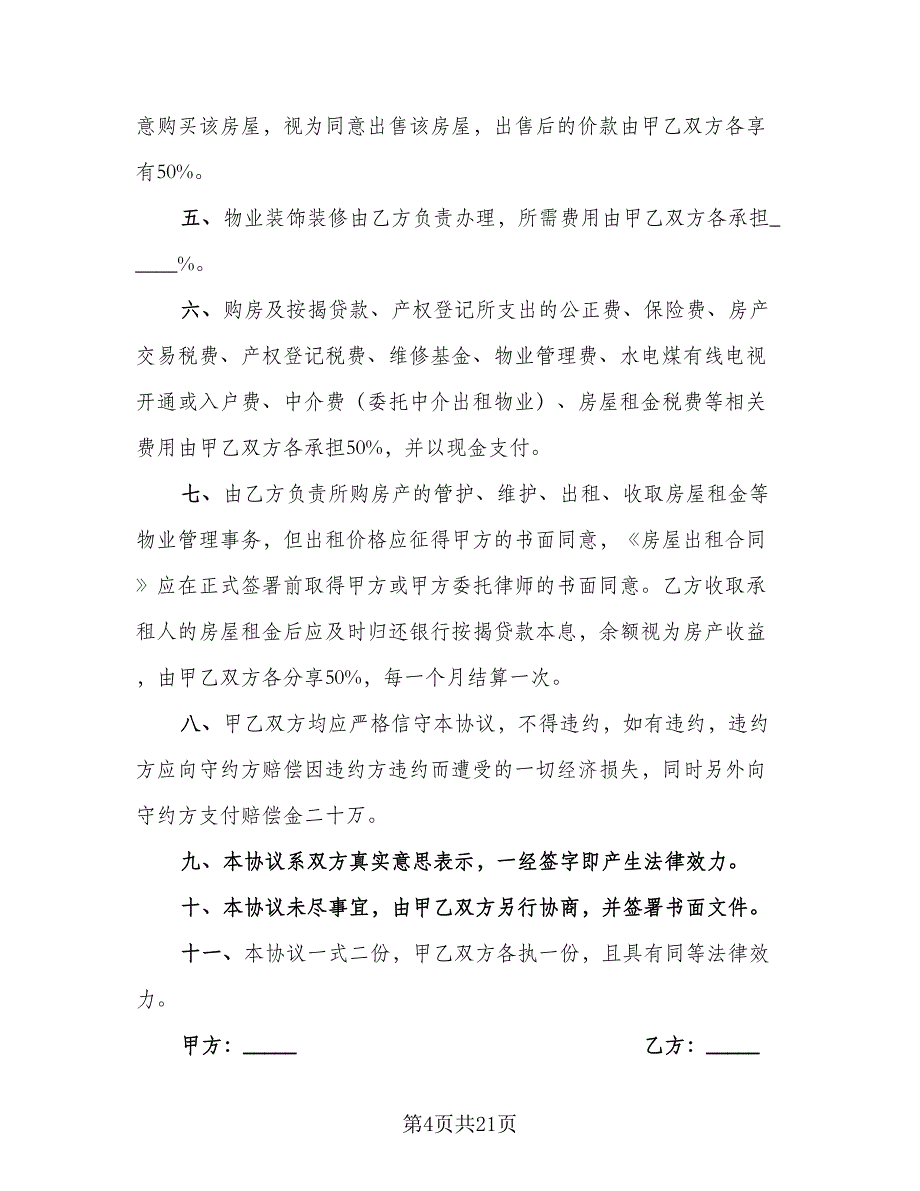 意购买该房屋，视为同意出售该房屋，出售后的价款由甲乙双方各享
有50%。
五、物业装饰装修由乙方负责办理，所需费用由甲乙双方各承担_
____%。
六、购房及按揭贷款、产权登记所支出的公正费、保险费、房产
交易税费、产权登记税费、维修基金、物业管理费、水电煤有线电视
开通或入户费、中介费（委托中介出租物业）、房屋租金税费等相关
费用由甲乙双方各承担50%，并以现金支付。
七、由乙方负责所购房产的管护、维护、出租、收取房屋租金等
物业管理事务，但出租价格应征得甲方的书面同意，《房屋出租合同
》应在正式签署前取得甲方或甲方委托律师的书面同意。乙方收取承
租人的房屋租金后应及时归还银行按揭贷款本息，余额视为房产收益
，由甲乙双方各分享50%，每一个月结算一次。
八、甲乙双方均应严格信守本协议，不得违约，如有违约，违约
方应向守约方赔偿因违约方违约而遭受的一切经济损失，同时另外向
守约方支付赔偿金二十万。
九、本协议系双方真实意思表示，一经签字即产生法律效力。
十、本协议未尽事宜，由甲乙双方另行协商，并签署书面文件。
十一、本协议一式二份，甲乙双方各执一份，且具有同等法律效
力。
甲方：_____ 乙方：_____
第4页共21页